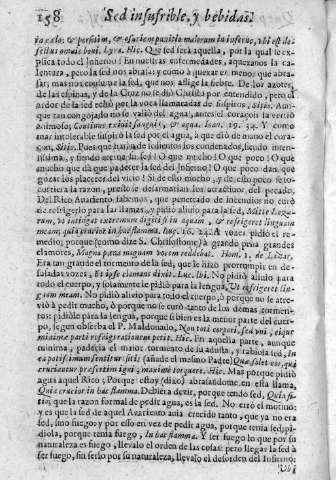 158 Sed insufrible, y bebidas.
sellus omnis boni. Lyra. Hic. Que sed será aquella, por la qual se ex-
plica todo el Infierno! En nuestras enfermedades, aquexanos la ca-
lentura, pero la sed nos
lar, mas nos congoxe la sed, que nos aflige la fiebre. De los azotes,
de las espinas, y de la Cruz no se Christo por entendido, pero el
ardor de la sed por la voca suspiros, Sitio. Aun-
que tan congojado no se valió del agua, antes el coraçon la vertió
animado, Continuò exivit sanguis, & aqua. Ioan. 19. 34. Y como
ansias suspiró la sed por el agua, à que diò de mano el cora-
çon, Sitio. Pues que los condenados, siendo inten-
sissima, y siendo la sed del Infierno! O que mucho! O que poco! O que
mucho que dà que padecer la sed del Infierno! O que poco dan que
gozar los placeres del vicio! Si de esso mucho, y de esto poco se so-
corriera la razon, presto se desarmarian los atractivos del pecado.
Del Rico Avariento sabemos, que penetrado de incendios no curò
de refrigerio para las llamas, y pidió alivio para la sed, Mitte Laza-
rum, ut intingat extremum digiti sui in aquam, & refrigeret linguam
meam, quia crucior in hac flamma. Luc. 16. 24. A vozes pidió el re-
medio; porque (como dize S. Chrisostomo) à grande pena grandes
clamores, Magna pœna magnam vocem reddebat. Hom. 1. de Lazar.
Era tan grande el tormento de la sed, que le hizo prorrumpir en de-
saladas vozes, Et ipse clamans dixit. Luc. ibi. No pidió alivio para
todo el cuerpo, y solamente le pidió para la lengua, Ut refrigeret lin-
guam meam. No pidió alivio para todo el cuerpo, ò porque no se atre-
vió à pedir mucho, ò porque no se curò tanto de los demas tormen-
tos: pidióle para la lengua, porque si bien es la menor parte del cuer-
po, segun observa el P. Maldonado, Non toti corpori, sed uni, eique
minimæ parti refrigerationem petit. Hic. En aquella parte, aunque
minima, padecia el maior tormento de su adusta, y rabiosa sed, In
ea potissimum sentitur sitis (añade el mesmo Padre) Quæ solet eos, qui
cruciantur præsertim igni, maximè torquere. Hic. Mas porque pidió
agua aquel Rico? Porque estoy (dixo) abrasandome en esta llama,
Quia crucior in hac flamma. Debiera dezir, porque tengo sed, Quia si-
tio, que la razon formal de pedir agua, es la sed. No errò el motivo:
y es que la sed de aquel Avariento avia crecido tanto, que ya no era
sed, sino fuego; y por esso en vez de pedir agua, porque tenia sed, pi-
diola, porque tenia fuego, In hac flamma. Y ser fuego lo que por su
naturaleza es fuego, llevalo el orden de las cosas: pero llegar la sed à
ser fuego, sin serlo por su naturaleza, llevalo el desorden del Infierno: